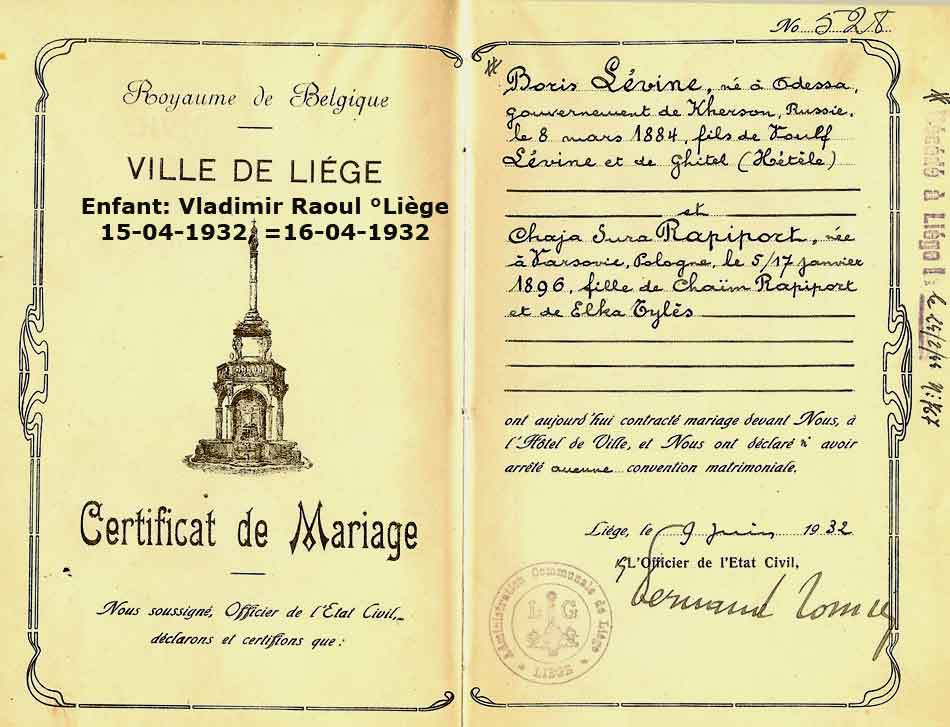 Royaume de Belgique
VILLE DE LIÉGE
Enfant: Vladimir Raoul °Liège
15-04-1932, =16-04-1932
Certificat de Mariage
Nous soussigné, Officier de l'Etat Civil,
déclarons et certifions que :
No 528
* Boris Lévine, né à Odessa,
gouvernement de Kherson, Russie,
le 8 mars 1884, fils de Voulf
Lévine et de Ghitel (Hétèle)
et
Chaja Sura Rapiport, née
à Varsovie, Pologne, le 5/17 janvier
1896, fille de Chaïm Rapiport
et de Elka Tylès
ont aujourd'hui contracté mariage devant Nous, à
l'Hôtel de Ville, et Nous ont déclaré n' avoir
arrêté aucune convention matrimoniale.
Liége, le 9 Juin 1932
L'Officier de l'Etat Civil,
Administration Communale de Liége
L G
LIEGE
* à Liége, le